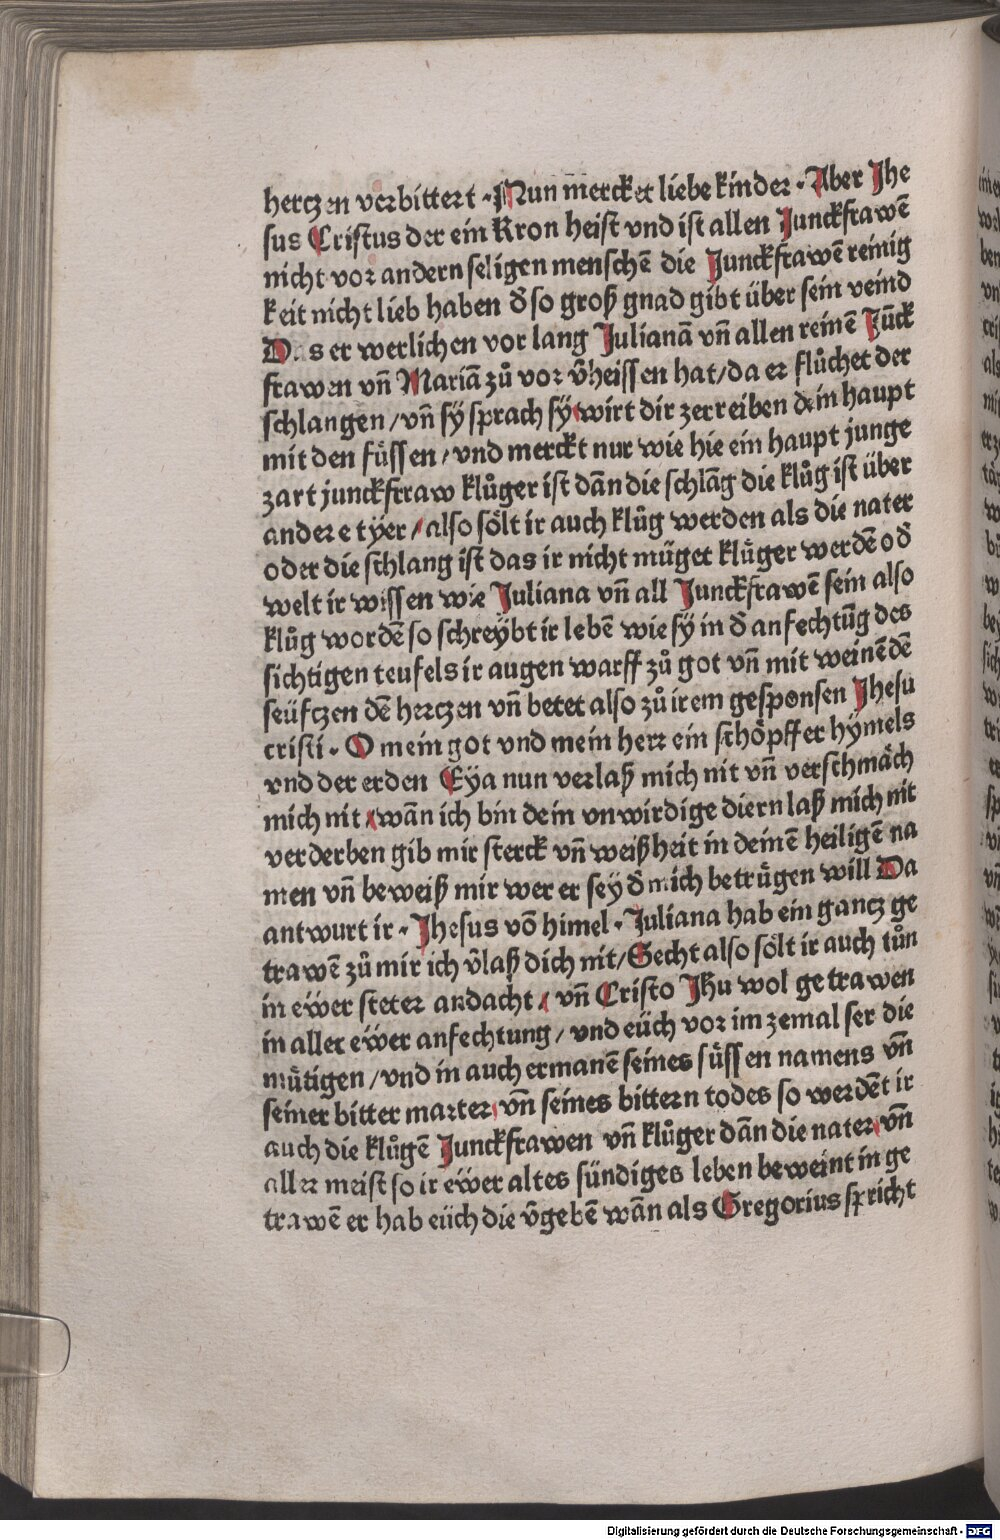 hertzen verbittert · Nun mercket liebe kinder · Aber Jhe
sus Cristus der ein Kron heist vnd ist allen Junckfrawē
nicht vor andern seligen menschē die Junckfrawē reinig
keit nicht lieb haben d̄ so groß gnad gibt über sein veind
Das er werlichen vor lang Julianā vn̄ allen reinē Jūck
frawen vn̄ Mariā zů vor v̄heissen hat/da er flůchet der
schlangen/vn̄ sÿ sprach sÿ wirt dir zerreiben dein haupt
mit den fůssen/vnd merckt nur wie hie ein haupt junge
zart junckfraw klůger ist dān die schlāg die klůg ist über
andere tÿer/also sölt ir auch klůg werden als die nater
oder die schlang ist das ir nicht müget klůger werdē od̄
welt ir wissen wie Juliana vn̄ all Junckfrawē sein also
klůg wordē so schreÿbt ir lebē wie sÿ in d̄ anfechtūg des
sichtigen teufels ir augen warff zů got vn̄ mit weinēdē
seüftzen dē hertzen vn̄ betet also zů irem gesponsen Jhesu
cristi · O mein got vnd mein herr ein schöpffer hÿmels
vnd der erden Eÿa nun verlaß mich nit vn̄ verschmäch
mich nit wān ich bin dein vnwirdige diern laß mich nit
verderben gib mir sterck vn̄ weißheit in deinē heiligē na
men vn̄ beweiß mir wer er seÿ d̄ mich betrůgen will Da
antwurt ir · Jhesus vō himel · Juliana hab ein gantz ge
trawē zů mir ich v̄laß dich nit/Secht also sölt ir auch tůn
in eẅer steter andacht / vn̄ Cristo Jhu wol getrawen
in aller eẅer anfechtung/vnd eüch vor im zemal ser die
můtigen/vnd in auch ermanē seines sůssen namens vn̄
seiner bitter marter vn̄ seines bittern todes so werdēt ir
auch die klůgē Junckfrawen vn̄ klůger dān die nater vn̄
aller meist so ir eẅer altes sündiges leben beweint in ge
trawē er hab eüch die v̄gebē wān als Gregorius spricht
Digitalisierung gefördert durch die Deutsche Forschungsgemeinschaft - DFG